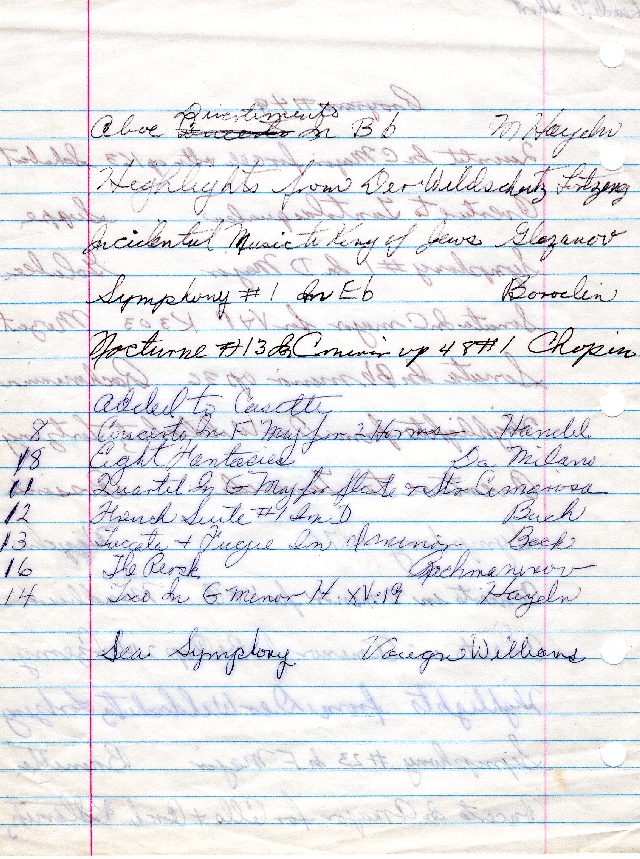 Divertimento
Oboe Concerto In Bb M Haydn
Highlights from Der Wildschutz Lortzing
Incidental Music to King of Jews Glazanov
Symphony #1 In Eb Borodin
Nocturne #13 In C minor op 48 #1 Chopin
Added to Casette
8 Concerto In F Maj for 2 Horns Handel
18 Eight Fantasies Da Milano
11 Quartet In G Maj for flute + Str Cimarosa
12 French Suite #1 In D Bach
13 Tocata + Fugue In D minor Bach
16 The Rock Rachmaninov
14 Trio In G Minor H. XV:19 Haydn
Sea Symphony Vaugn Williams